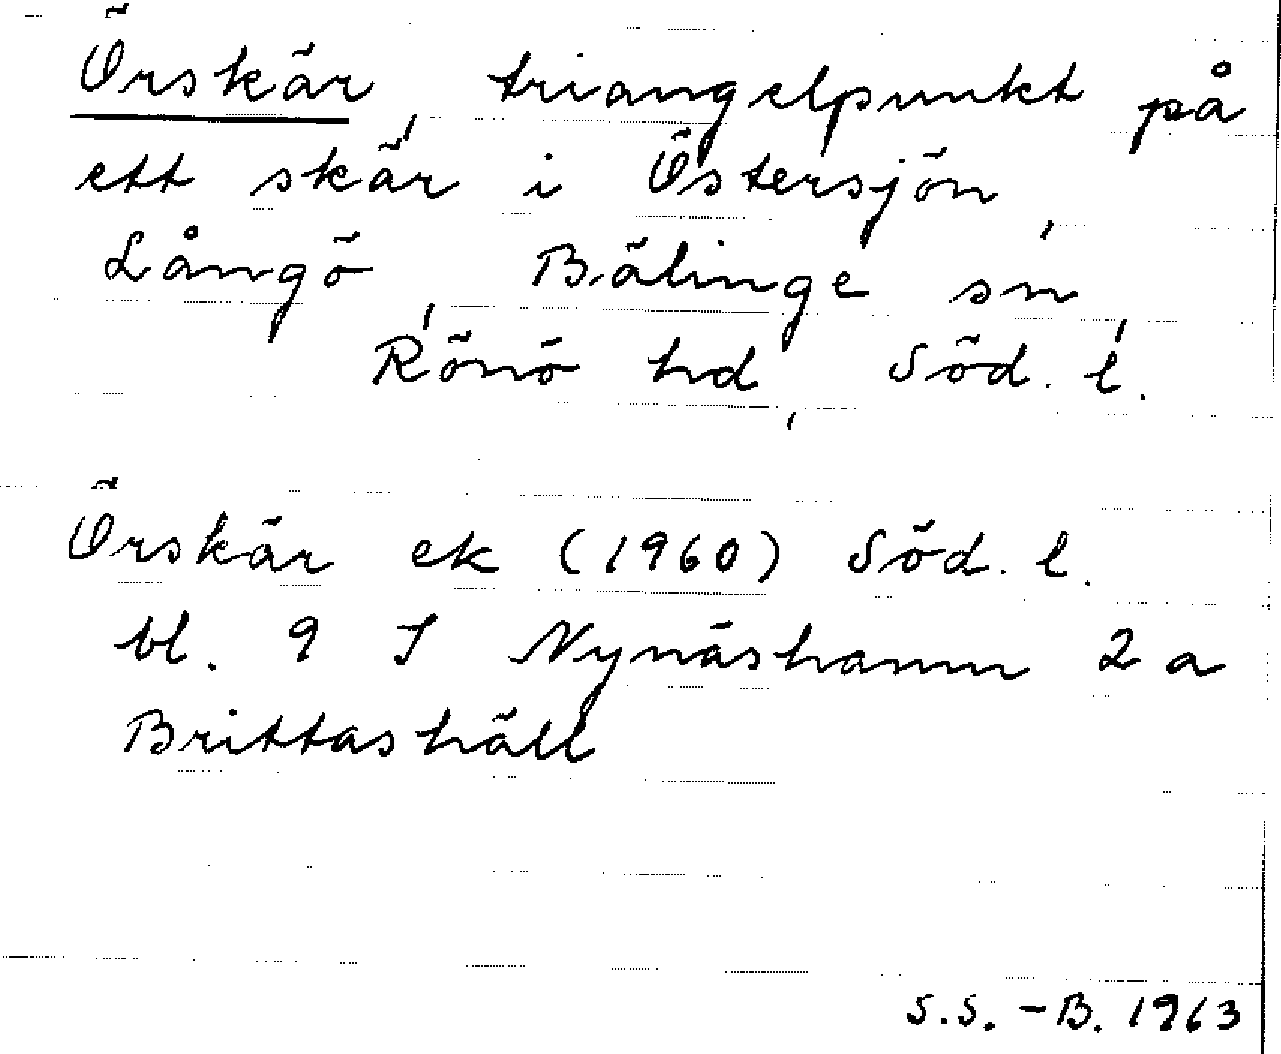 Örskär, triangelpunkt på
ett skär i Östersjön,
Långö, Bälinge sn,
Rönö hd, Söd. l.
Örskär ek (1960) Söd. l.
bl. 9 I Nynäshamn 2 a
Brittashäll
S.S. -B. 1963